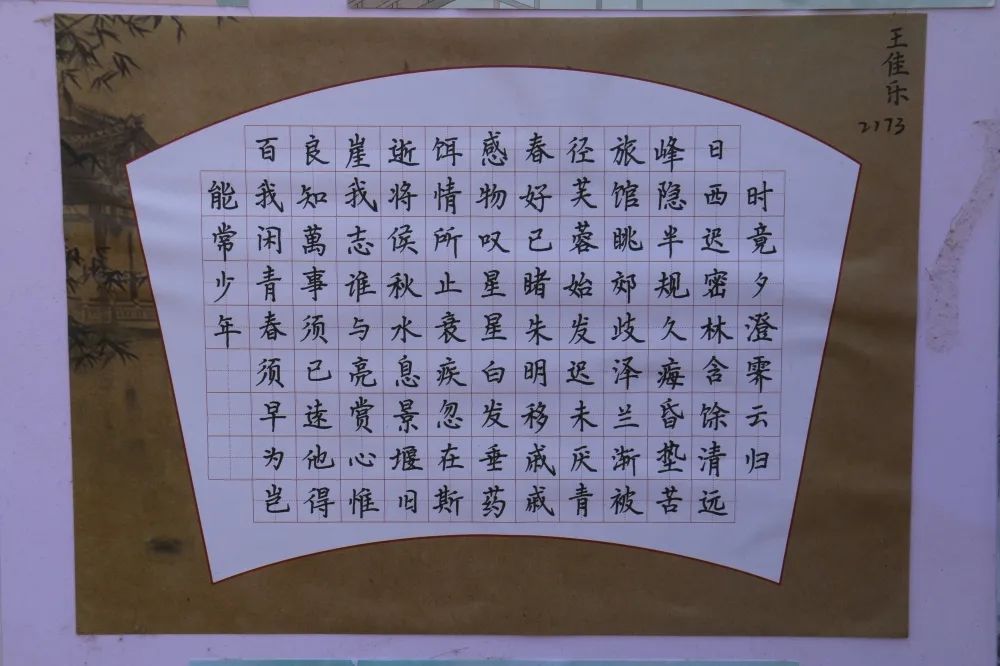 时竟夕澄霁云归
日西迟密林含馀清远
峰隐半规久痗昏垫苦
旅馆眺郊歧泽兰渐被
径芙蓉始发迟未厌青
春好已睹朱明移戚戚
感物叹星星白发垂药
饵情所止衰疾忽在斯
逝将侯秋水息景堰旧
崖我志谁与亮赏心惟
良知萬事须已远他得
百我闲青春须早为岂
能常少年
王佳乐
2173